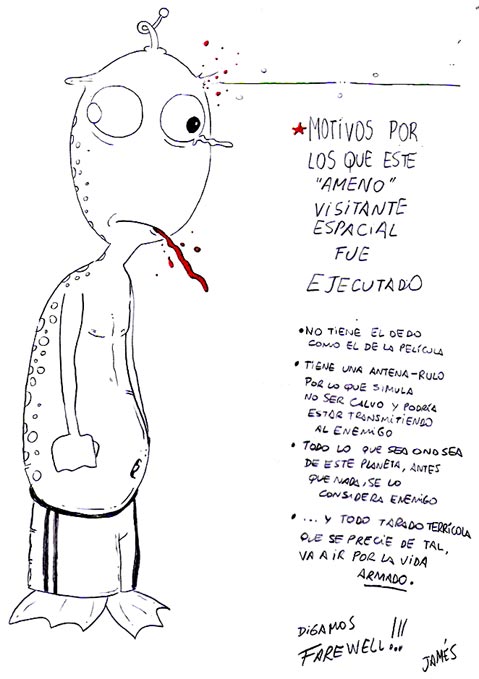 ★MOTIVOS POR
LOS QUE ESTE
"AMENO"
VISITANTE
ESPACIAL
FUE
EJECUTADO
• NO TIENE EL DEDO
COMO EL DE LA PELÍCULA
• TIENE UNA ANTENA-RULO
POR LO QUE SIMULA
NO SER CALVO Y PODRÍA
ESTAR TRANSMITIENDO
AL ENEMIGO
• TODO LO QUE SEA O NO SEA
DE ESTE PLANETA, ANTES
QUE NADA, SE LO
CONSIDERA ENEMIGO
• ... Y TODO TARADO TERRÍCOLA
QUE SE PRECIE DE TAL,
VA A IR POR LA VIDA
ARMADO.
DIGAMOS
FAREWELL!!!...
JAMÉS